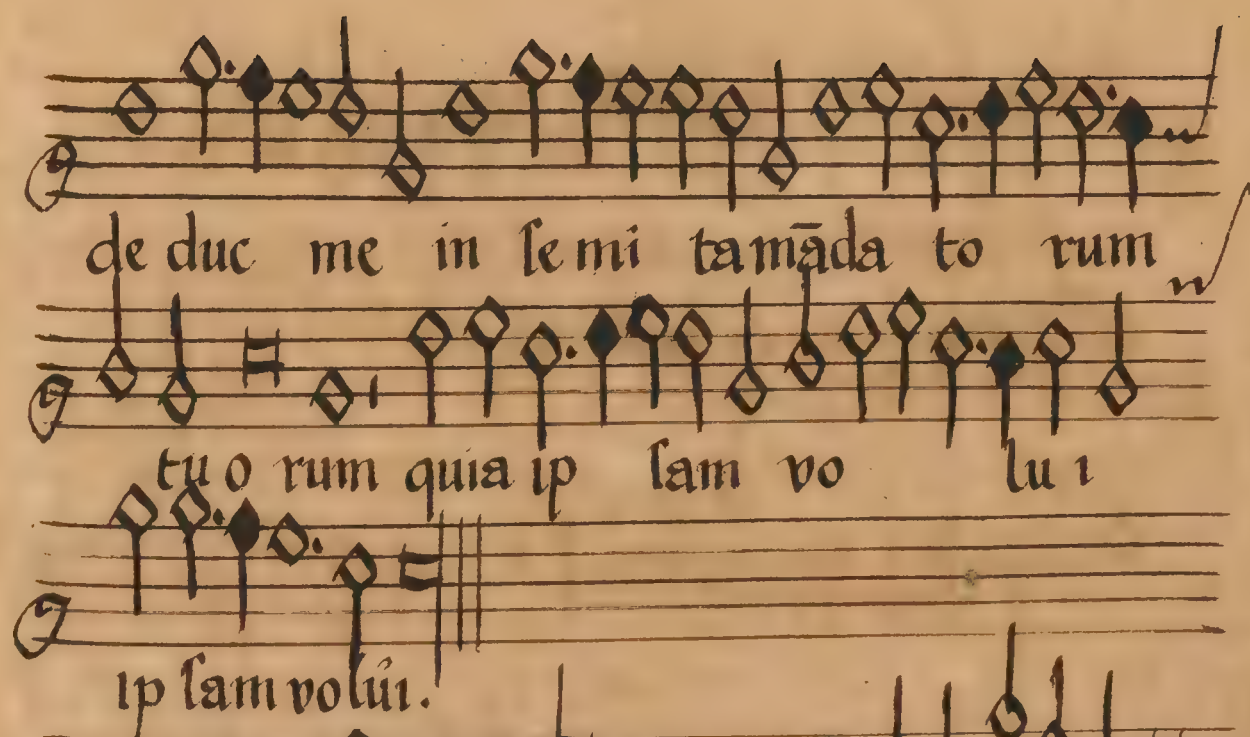 de duc me in ſe mi ta māda to rum
tu o rum quia ip ſam vo lu i
ip ſam volúi.